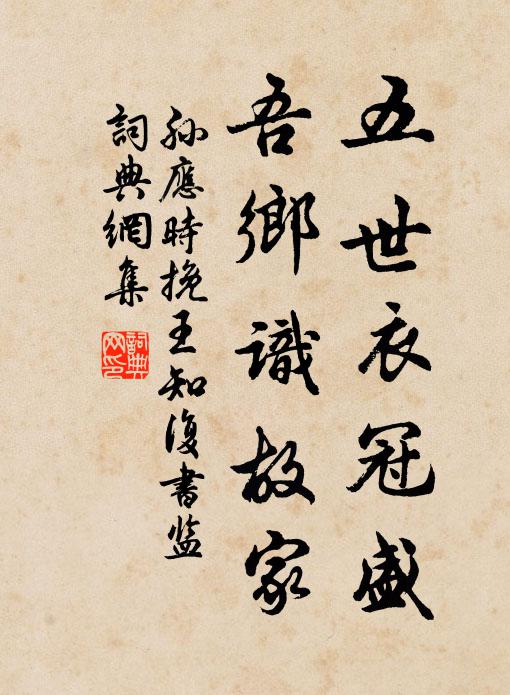 五世衣冠盛
吾鄉識故家
孫應時挽王知復書監
詞典網集
詞典網印